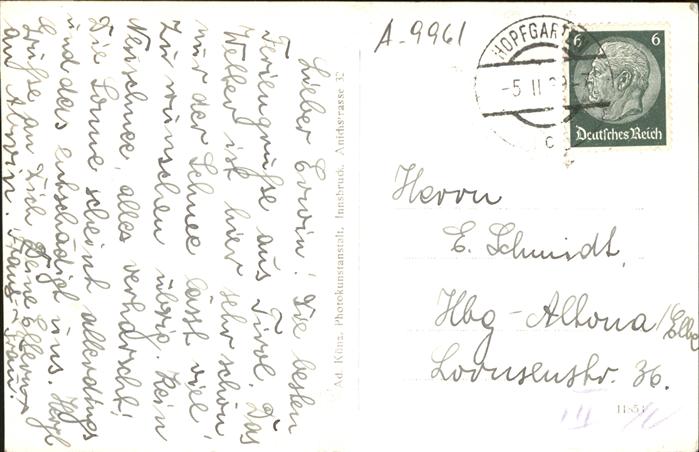 Lieber Erwin! Die besten
Feriengrüße aus Tirol. Das
Wetter ist hier sehr schön
nur der Schnee lässt viel
zu wünschen übrig. Kein
Neuschnee, alles verharscht!
Die Sonne scheint allerdings
und das entschädigt uns. Herzl
Grüße an Dich Deine Eltern +
an Alwin. Hans + Frau.
Ad. Künz, Photokunstanstalt, Innsbruck, Anichstrasse 32
A-9961
HOPFGARTE
-5 II 39-7
c
6 6
Deutsches Reich
Herrn
E. Schmidt,
Hbg-Altona/Elbe
Lornsenstr. 36.
11854
III